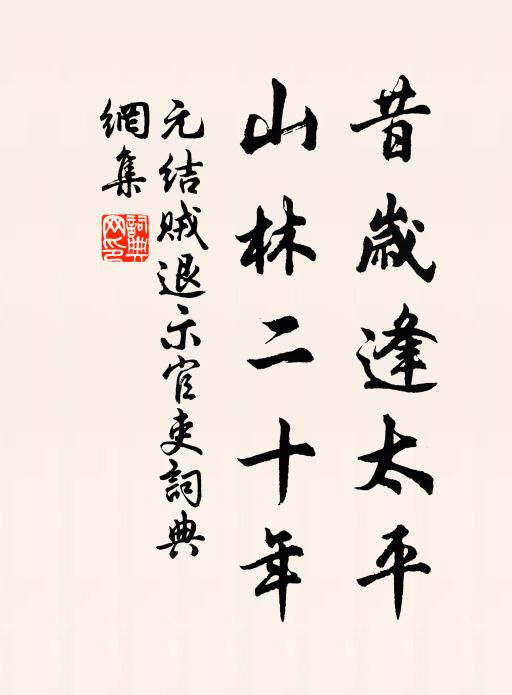 昔歲逢太平
山林二十年
元結賊退示官吏詞典
網集
詞典
网印